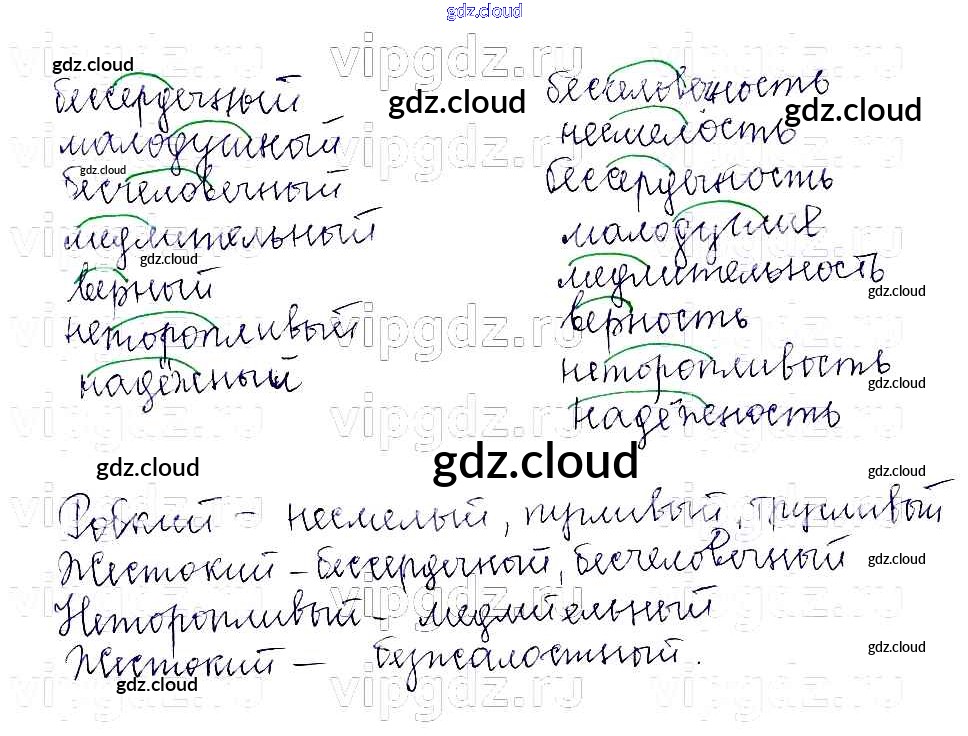 gdz.cloud
vipgdz.ru vipgdz.ru vipgdz.ru
gdz.cloud
бессердечный
gdz.cloud
малодушный
gdz.cloud
бесчеловечный
медлительный
gdz.cloud
верный
неторопливый
надёжный
бесчеловечность
gdz.cloud
несмелость
бессердечность
малодушие
медлительность
gdz.cloud
верность
неторопливость
gdz.cloud
надёжность
gdz.cloud
gdz.cloud
gdz.cloud
Робкий – несмелый, пугливый, трусливый
Жестокий – бессердечный, бесчеловечный
gdz.cloud
Неторопливый – медлительный
Жестокий – безжалостный.
gdz.cloud
gdz.cloud